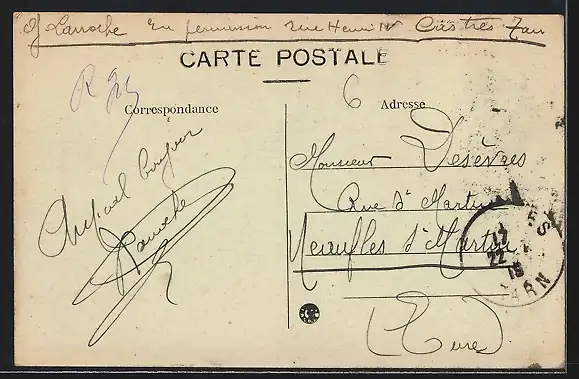 Larroche En permission rue Henri IV Castres Tarn
CARTE POSTALE
6
Correspondance
Adresse
Amical bonjour
Larroche
Monsieur Desèvres
Rue St Martin
Neaufles St Martin
(Eure)
17
22
ARN